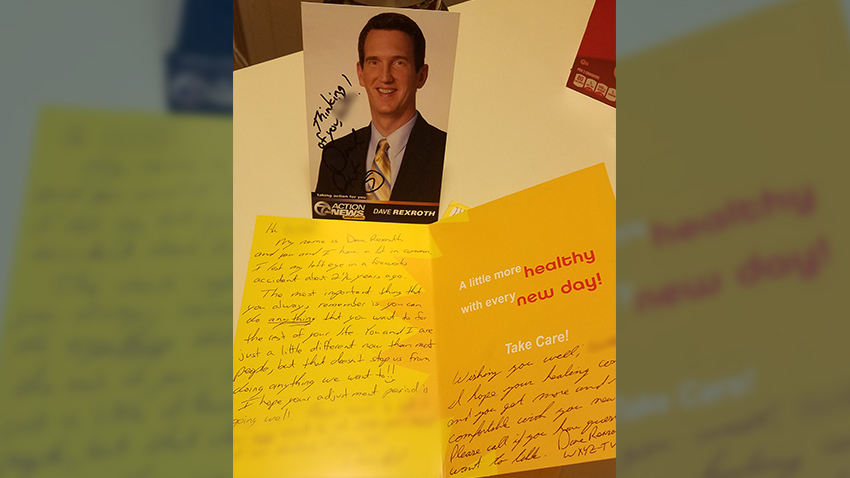 Thinking
of you,
taking action for you
7 ACTION
NEWS
DAVE REXROTH
Hi
My name is Dave Rexroth
and you and I have a lot in common.
I lost my left eye in a fireworks
accident about 2 1/2 years ago.
The most important thing that
you always remember is you can
do anything that you want to for
the rest of your life. You and I are
just a little different now than most
people, but that doesn't stop us from
doing anything we want to!!
I hope your adjustment period is
going well!
A little more healthy
with every new day!
Take Care!
Wishing you well,
I hope your healing
and you get more and
comfortable with you new
Please call if you have
want to talk. Dave
WXYZ-TV